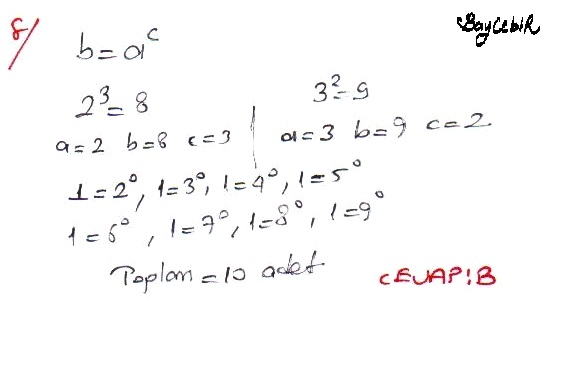 8/
BaycebiR
b=a^c
2³=8
3²=9
a=2 b=8 c=3
a=3 b=9 c=2
1=2⁰, 1=3⁰, 1=4⁰, 1=5⁰
1=6⁰, 1=7⁰, 1=8⁰, 1=9⁰
Toplam=10 adet
CEVAP:B